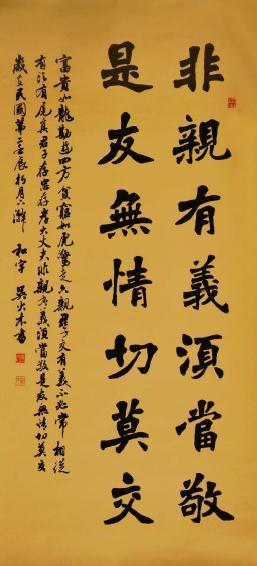 非親有義須當敬
是友無情切莫交
富貴如龍勘遊四方貧窮如虎驚走六親君子交有義不必常相從
有活有尾真君子存忠存孝大丈夫非親有義須當敬是友無情切莫交
歲在民國第壬辰 和宇 吳火木書